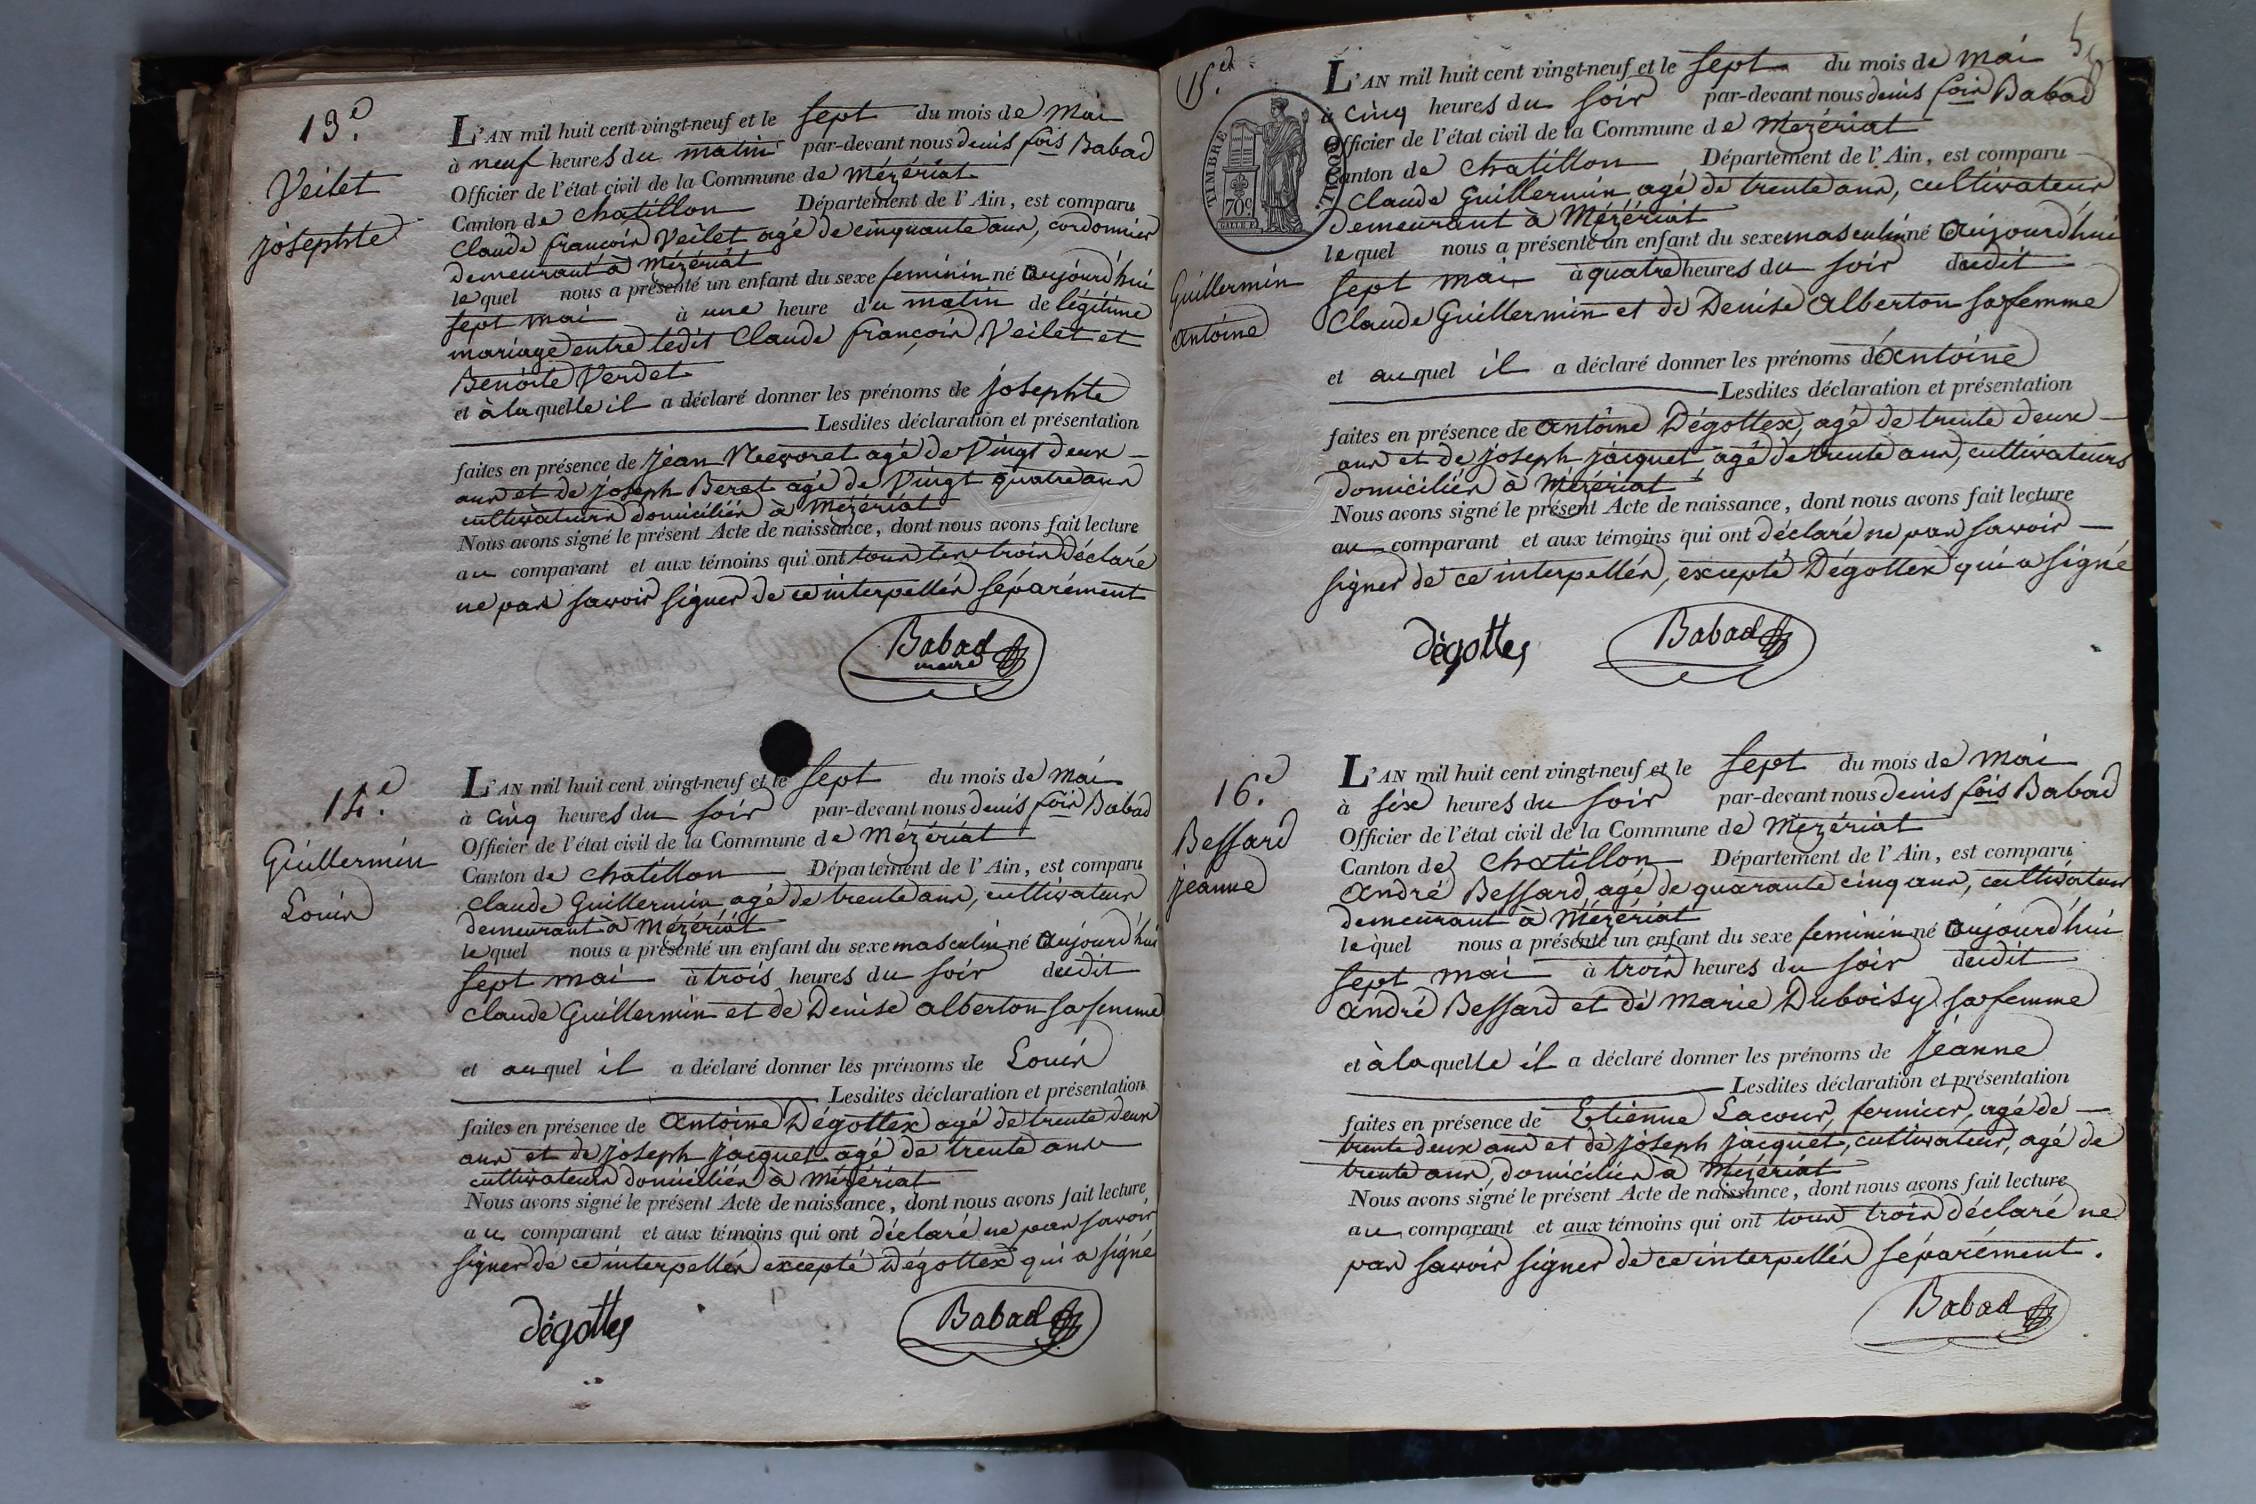 13.e
Veilet
josephte
L'AN mil huit cent vingt-neuf et le sept du mois de Mai
à neuf heures du matin par-devant nous denis fois Babad
Officier de l'état civil de la Commune de Mézériat
Canton de chatillon Département de l'Ain, est comparu
Claude françois Veilet agé de cinquante ans, cordonnier
demeurant à Mézériat
lequel nous a présenté un enfant du sexe feminin né aujourd'hui
sept mai à une heure du matin de légitime
mariage entre ledit Claude françois Veilet et
Benoite Verdet
et à laquelle il a déclaré donner les prénoms de josephte
Lesdites déclaration et présentation
faites en présence de jean agé de Vingt deux
ans et de joseph Beret agé de Vingt quatre ans
cultivateurs domiciliés à Mézériat
Nous avons signé le présent Acte de naissance, dont nous avons fait lecture
au comparant et aux témoins qui ont tous les trois déclaré
ne pas savoir signer de ce interpellés séparément
Babad
maire
14.e
Guillermin
Louis
L'AN mil huit cent vingt-neuf et le sept du mois de Mai
à cinq heures du soir par-devant nous denis fois Babad
Officier de l'état civil de la Commune de Mézériat
Canton de chatillon Département de l'Ain, est comparu
Claude Guillermin agé de trente ans, cultivateur
demeurant à Mézériat
lequel nous a présenté un enfant du sexe masculin né aujourd'hui
sept mai à trois heures du soir dudit
Claude Guillermin et de Denise alberton sa femme
et auquel il a déclaré donner les prénoms de Louis
Lesdites déclaration et présentation
faites en présence de antoine Dégottex agé de trente deux
ans et de joseph jacquet agé de trente ans
cultivateurs domiciliés à Mézériat
Nous avons signé le présent Acte de naissance, dont nous avons fait lecture,
au comparant et aux témoins qui ont déclaré ne pas savoir
signer de ce interpellés excepté Dégottex qui a signé
dégottex
Babad
15.e
TIMBRE ROYAL.
70c
Guillermin
antoine
L'AN mil huit cent vingt-neuf et le sept du mois de Mai
à cinq heures du soir par-devant nous denis fois Babad
Officier de l'état civil de la Commune de Mézériat
Canton de chatillon Département de l'Ain, est comparu
Claude Guillermin agé de trente ans, cultivateur
demeurant à Mézériat
lequel nous a présenté un enfant du sexe masculin né aujourd'hui
sept mai à quatre heures du soir dudit
Claude Guillermin et de Denise alberton sa femme
et auquel il a déclaré donner les prénoms d'antoine
Lesdites déclaration et présentation
faites en présence de antoine Dégottex, agé de trente deux
ans et de joseph jacquet agé de trente ans, cultivateurs
domiciliés à Mézériat
Nous avons signé le présent Acte de naissance, dont nous avons fait lecture
au comparant et aux témoins qui ont déclaré ne pas savoir
signer de ce interpellés, excepté Dégottex qui a signé
dégottex
Babad
16.e
Bessard
jeanne
L'AN mil huit cent vingt-neuf et le sept du mois de Mai
à six heures du soir par-devant nous denis fois Babad
Officier de l'état civil de la Commune de Mézériat
Canton de chatillon Département de l'Ain, est comparu
andré Bessard, agé de quarante cinq ans, cultivateur
demeurant à Mézériat
lequel nous a présenté un enfant du sexe feminin né aujourd'hui
sept mai à trois heures du soir dudit
andré Bessard et de marie Duboisy sa femme
et à laquelle il a déclaré donner les prénoms de jeanne
Lesdites déclaration et présentation
faites en présence de Etienne Lacour, fermier, agé de
trente deux ans et de joseph jacquet, cultivateur, agé de
trente ans, domiciliés à Mézériat
Nous avons signé le présent Acte de naissance, dont nous avons fait lecture
au comparant et aux témoins qui ont tous trois déclaré ne
pas savoir signer de ce interpellés séparément.
Babad